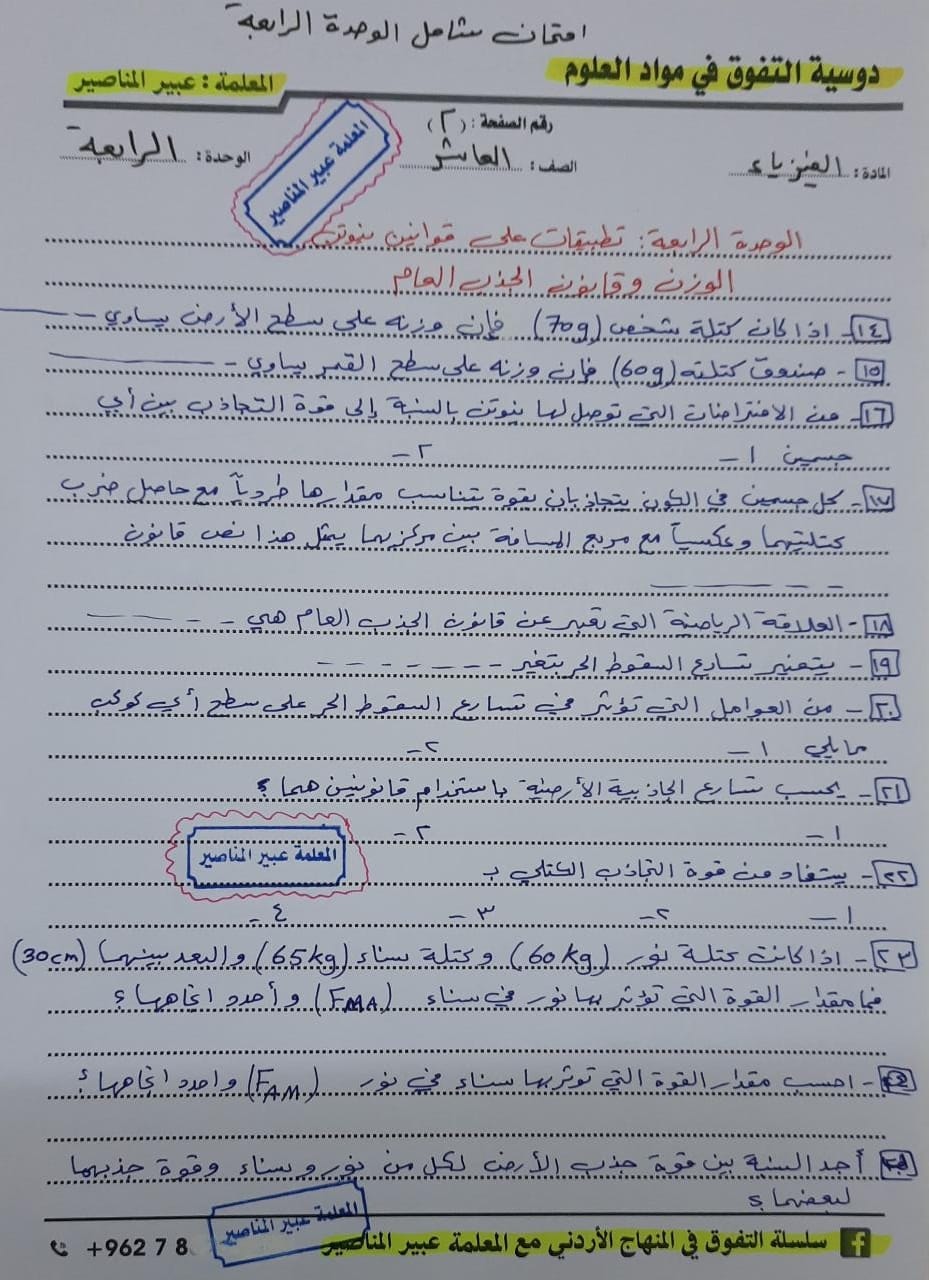 امتحان شامل الوحدة الرابعة
دوسية التفوق في مواد العلوم
المعلمة : عبير المناصير
رقم الصفحة : (٢)
المادة : الفيزياء
الصف : العاشر
الوحدة : الرابعة
المعلمة عبير المناصير
الوحدة الرابعة : تطبيقات على قوانين نيوتن
الوزن وقانون الجذب العام
١٤- اذا كان كتلة شخص (70g) فإن وزنه على سطح الأرض يساوي -
١٥- صندوق كتلته (60g) فإن وزنه على سطح القمر يساوي -
١٦- من الافتراضات التي توصل لها نيوتن بالنسبة إلى قوة التجاذب بين أي
جسمين ١- ٢-
١٧- كل جسمين في الكون يتجاذبان بقوة يتناسب مقدارها طردياً مع حاصل ضرب
كتلتيهما وعكسياً مع مربع المسافة بين مركزيهما يمثل هذا نص قانون
- - - - -
١٨- العلاقة الرياضية التي تعبر عن قانون الجذب العام هي - - - -
١٩- يتغير تسارع السقوط الحر بتغير - - - - - - -
٢٠- من العوامل التي تؤثر في تسارع السقوط الحر على سطح أي كوكب
مايلي ١- ٢-
٢١- يحسب تسارع الجاذبية الأرضية باستخدام قانونين هما ؟
١- ٢-
المعلمة عبير المناصير
٢٢- يستفاد من قوة التجاذب الكتلي بـ
١- ٢- ٣- ٤-
٢٣- اذا كانت كتلة نور (60kg) وكتلة سناء (65kg) والبعد بينهما (30cm)
فما مقدار القوة التي تؤثر بها نور في سناء (FMA) وأحدد اتجاهها ؟
- احسب مقدار القوة التي توثر بها سناء في نور (FAM) واحدد اتجاهها ؟
أجد النسبة بين قوة جذب الأرض لكل من نور وسناء وقوة جذبهما
لبعضهما ؟
المعلمة عبير المناصير
سلسلة التفوق في المنهاج الأردني مع المعلمة عبير المناصير
+962 7 8